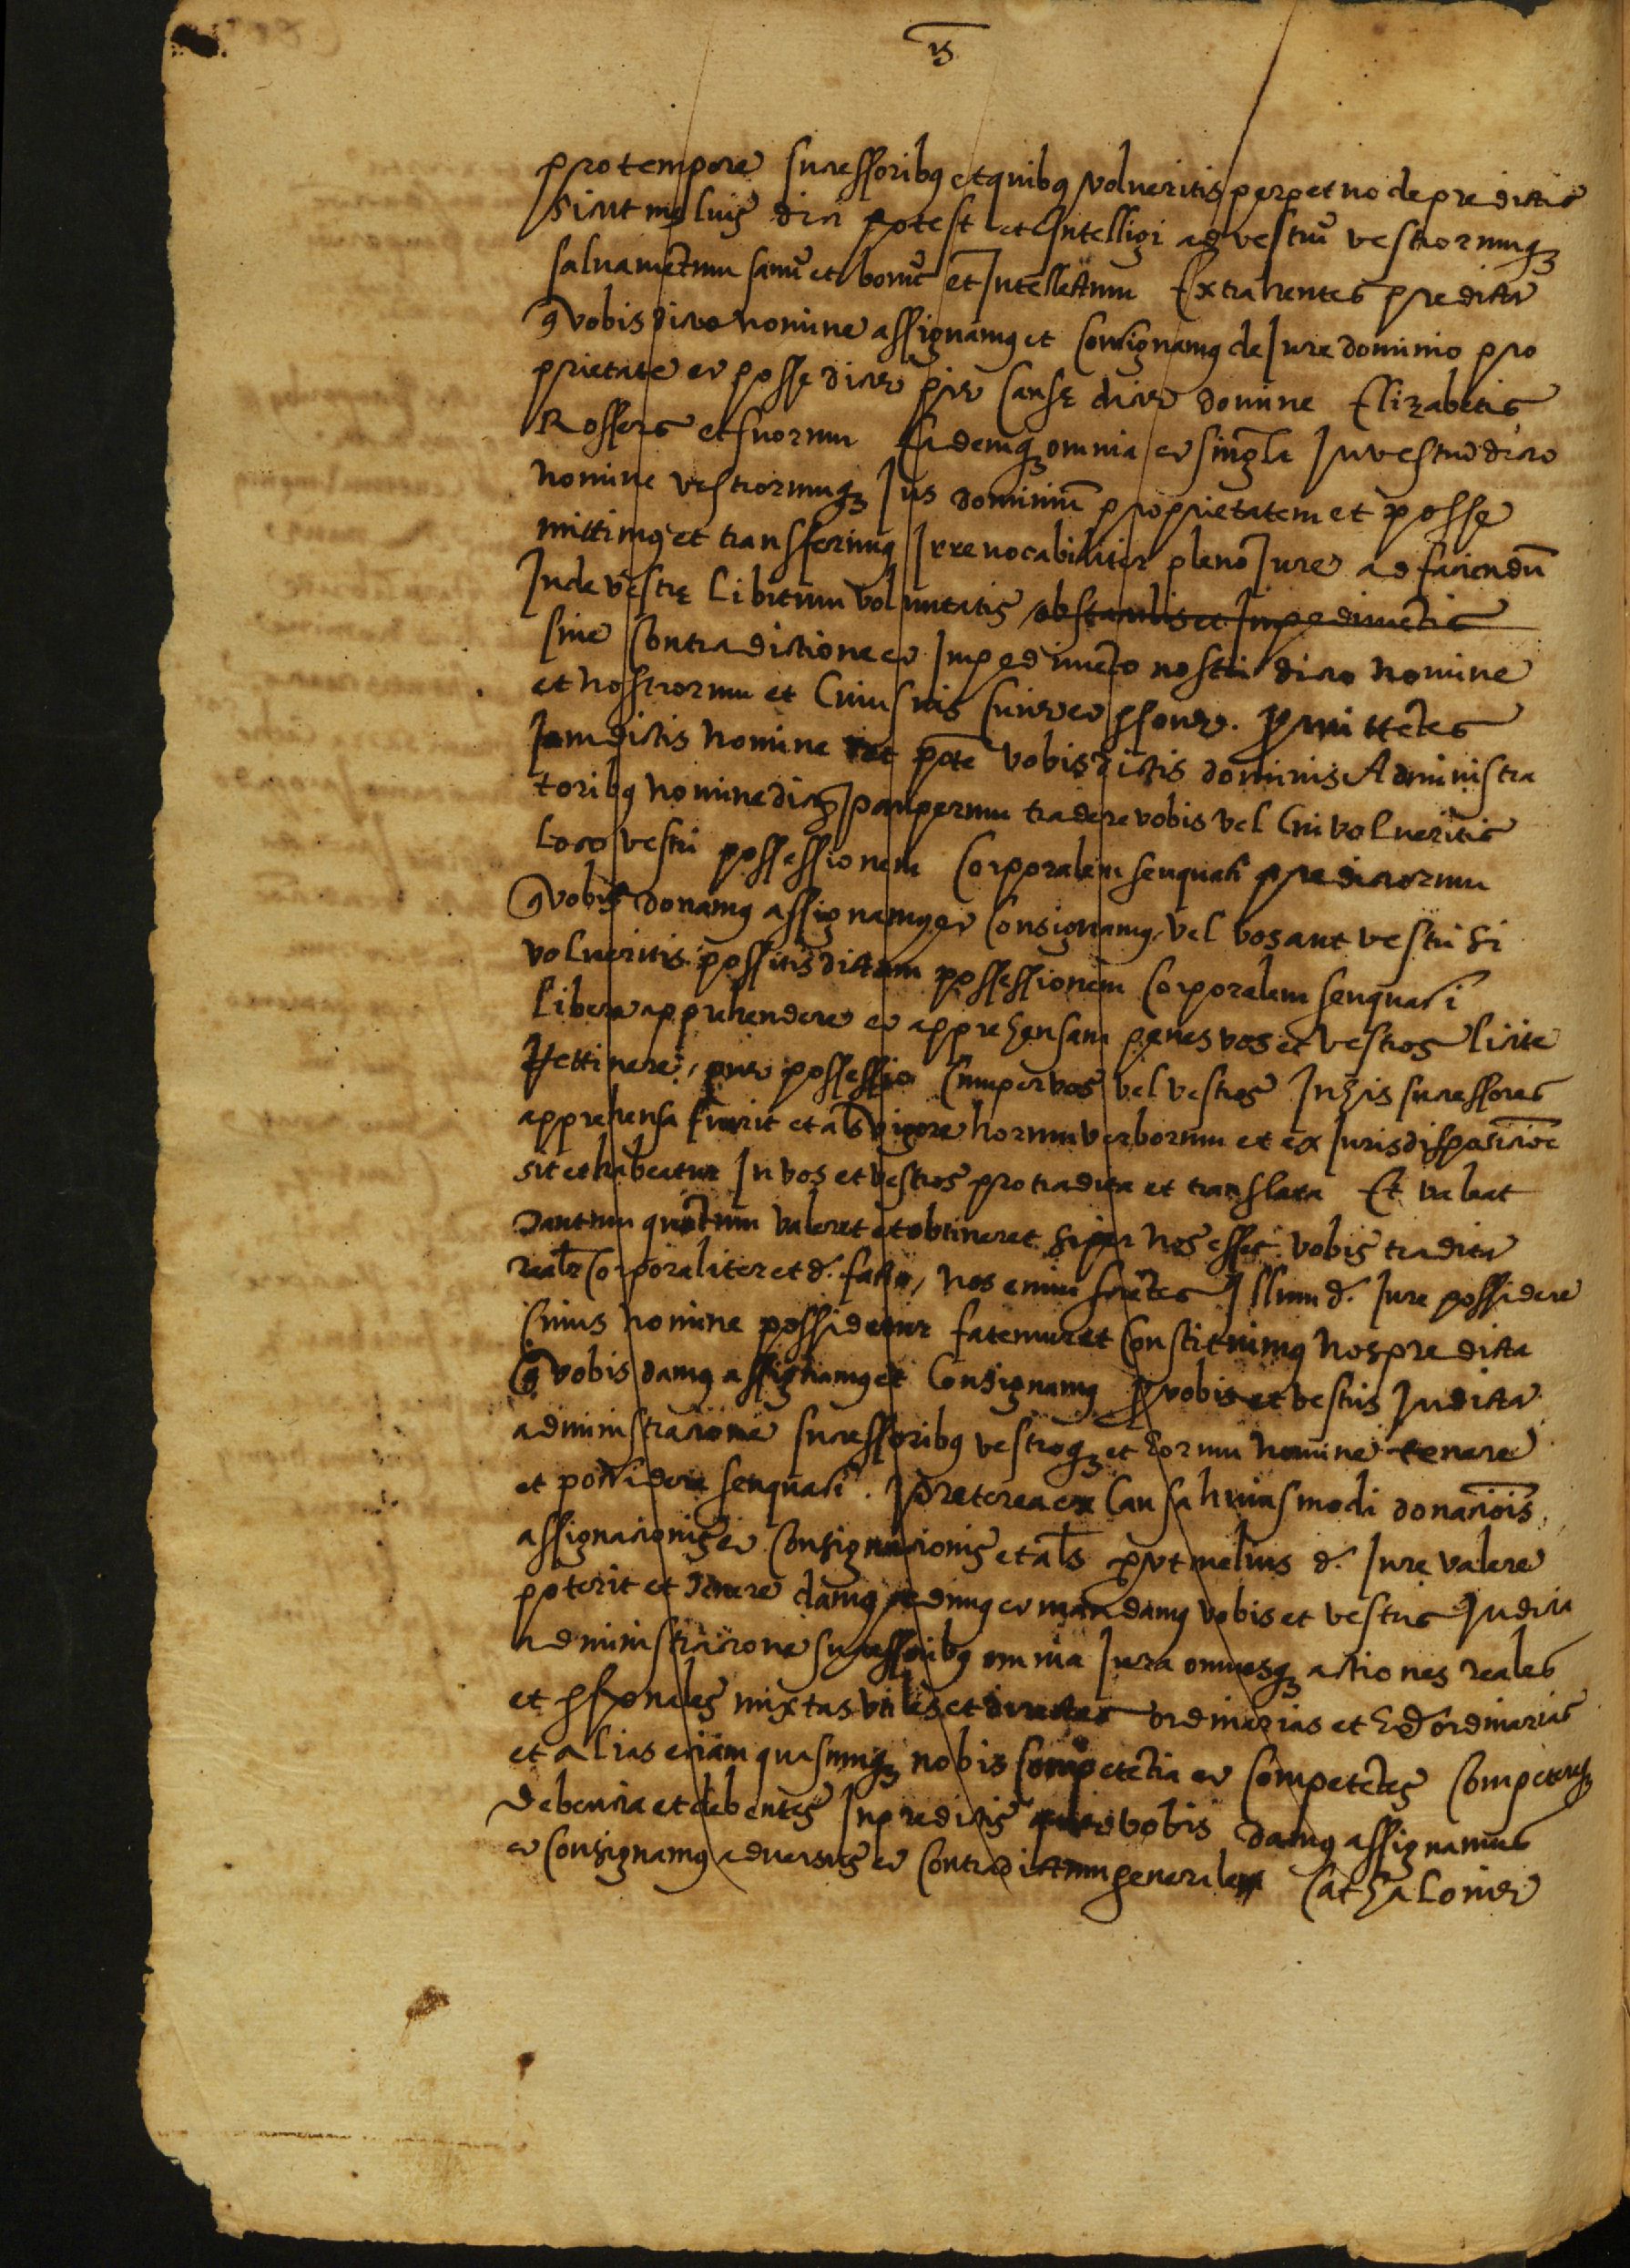 pro tempore successoribq et quibq volueritis perpetuo de predictis
Sicut melius dici potest et Intelligi ad vestrū vestrorumqȝ
salvamentum sanū et bonū et Intellectum Extrahentes predicta
q̄ vobis dicto nomine assignamq et consignamq de Jure dominio pro
prietate et posse dicte pie Cause dicte domine Elizabetis
Rossers et suorum Eademqȝ omnia et singla In vestrū dicto
nomine vestrorumqȝ Jus dominiū proprietatem et posse
mittimq et transferimq Irrevocabiliter pleno Jure ad faciendū
Inde vestrę Libitum voluntatis obstaculis et Impedimētis
sine Contradictione et Impedimēto nostri dicto nomine
et nostrorum et Cuiusvis Juris et psone. Pmittētes
Jamdictis nomine pote vobis dictis dominis Administra
toribq nomine dictȝ pauperum tradere vobis vel Cui volueritis
Loco vestri possessionem Corporalem seu quasi predictorum
q̄ vobis donamq assignamq et Consignamq, vel vos aut vestri si
volueritis possitis dictam possessionem Corporalem seu quasi
Libere apprehendere et apprehensam penes vos et vestros licite
rettinere, que possessio Cum per vos vel vestros In his successores
apprehensa fuerit et als vigore horum verborum et ex Juris disposicioē
sit et habeatur In vos et vestros pro tradita et translata Et valeat
tantum quātum valeret et obtineret si per nos esset vobis tradita
realr Corporaliter et d. facto, nos enim sciētes Illum d. Jure possidere
Cuius nomine possidetur fatemur et Constituimq nos predicta
q̄ vobis damq assignamq et Consignamq P vobis et vestris In dicta
administracione successoribq vestroqȝ et Eorum nomine tenere
et possidere seu quasi. Preterea ex Causa huiusmodi donacioīs
assignacionis et Consignacionis et als put melius d. Jure valere
poterit et tenere damq cedimq et mandamq vobis et vestris In dicta
administracione successoribq omnia Jura omnesqȝ actiones reales
et psonales mixtas vtiles et directas ordinarias et Exordinarias
et alias etiam quascumqȝ nobis Competētia et Competētes Competereqȝ
debencia et debentes In predictis que vobis damq assignamus
et Consignamq adversus et Contra dictum generalem Cathalonie